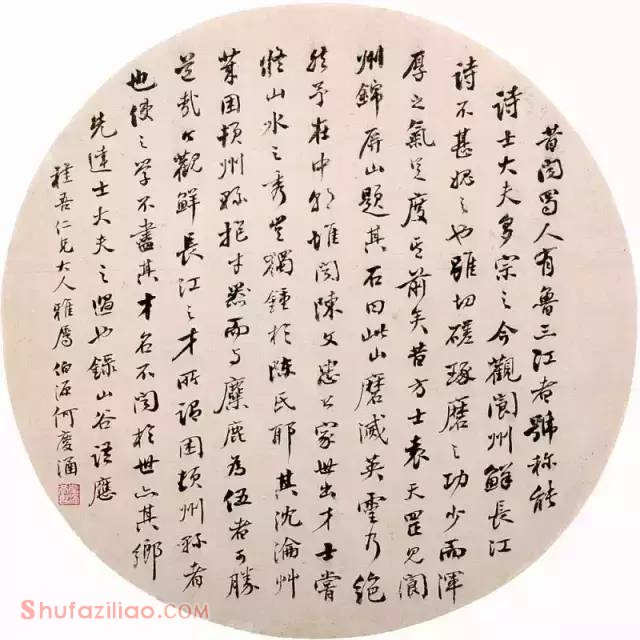 昔闻蜀人有鲁三江者号称能
诗士大夫多宗之今观阆州鲜长江
诗不甚愧之也虽切磋琢磨之功少而浑
厚之气足度其前矣昔方士袁天罡见阆
州锦屏山题其石曰此山磨灭英灵乃绝
然予在中朝唯闻陈文忠公家世出才士尝
疑山水之秀岂独钟于陈氏耶其沈沦艸
莱困顿州县抱才器而与麋鹿为伍者可胜
道哉今观鲜长江之才所谓困顿州县者
也使之学不尽其才名不闻于世亦其乡
先达士大夫之过也录山谷语应
稚吾仁兄大人雅属 伯源何庆涵
SHUFAZILIAO.COM